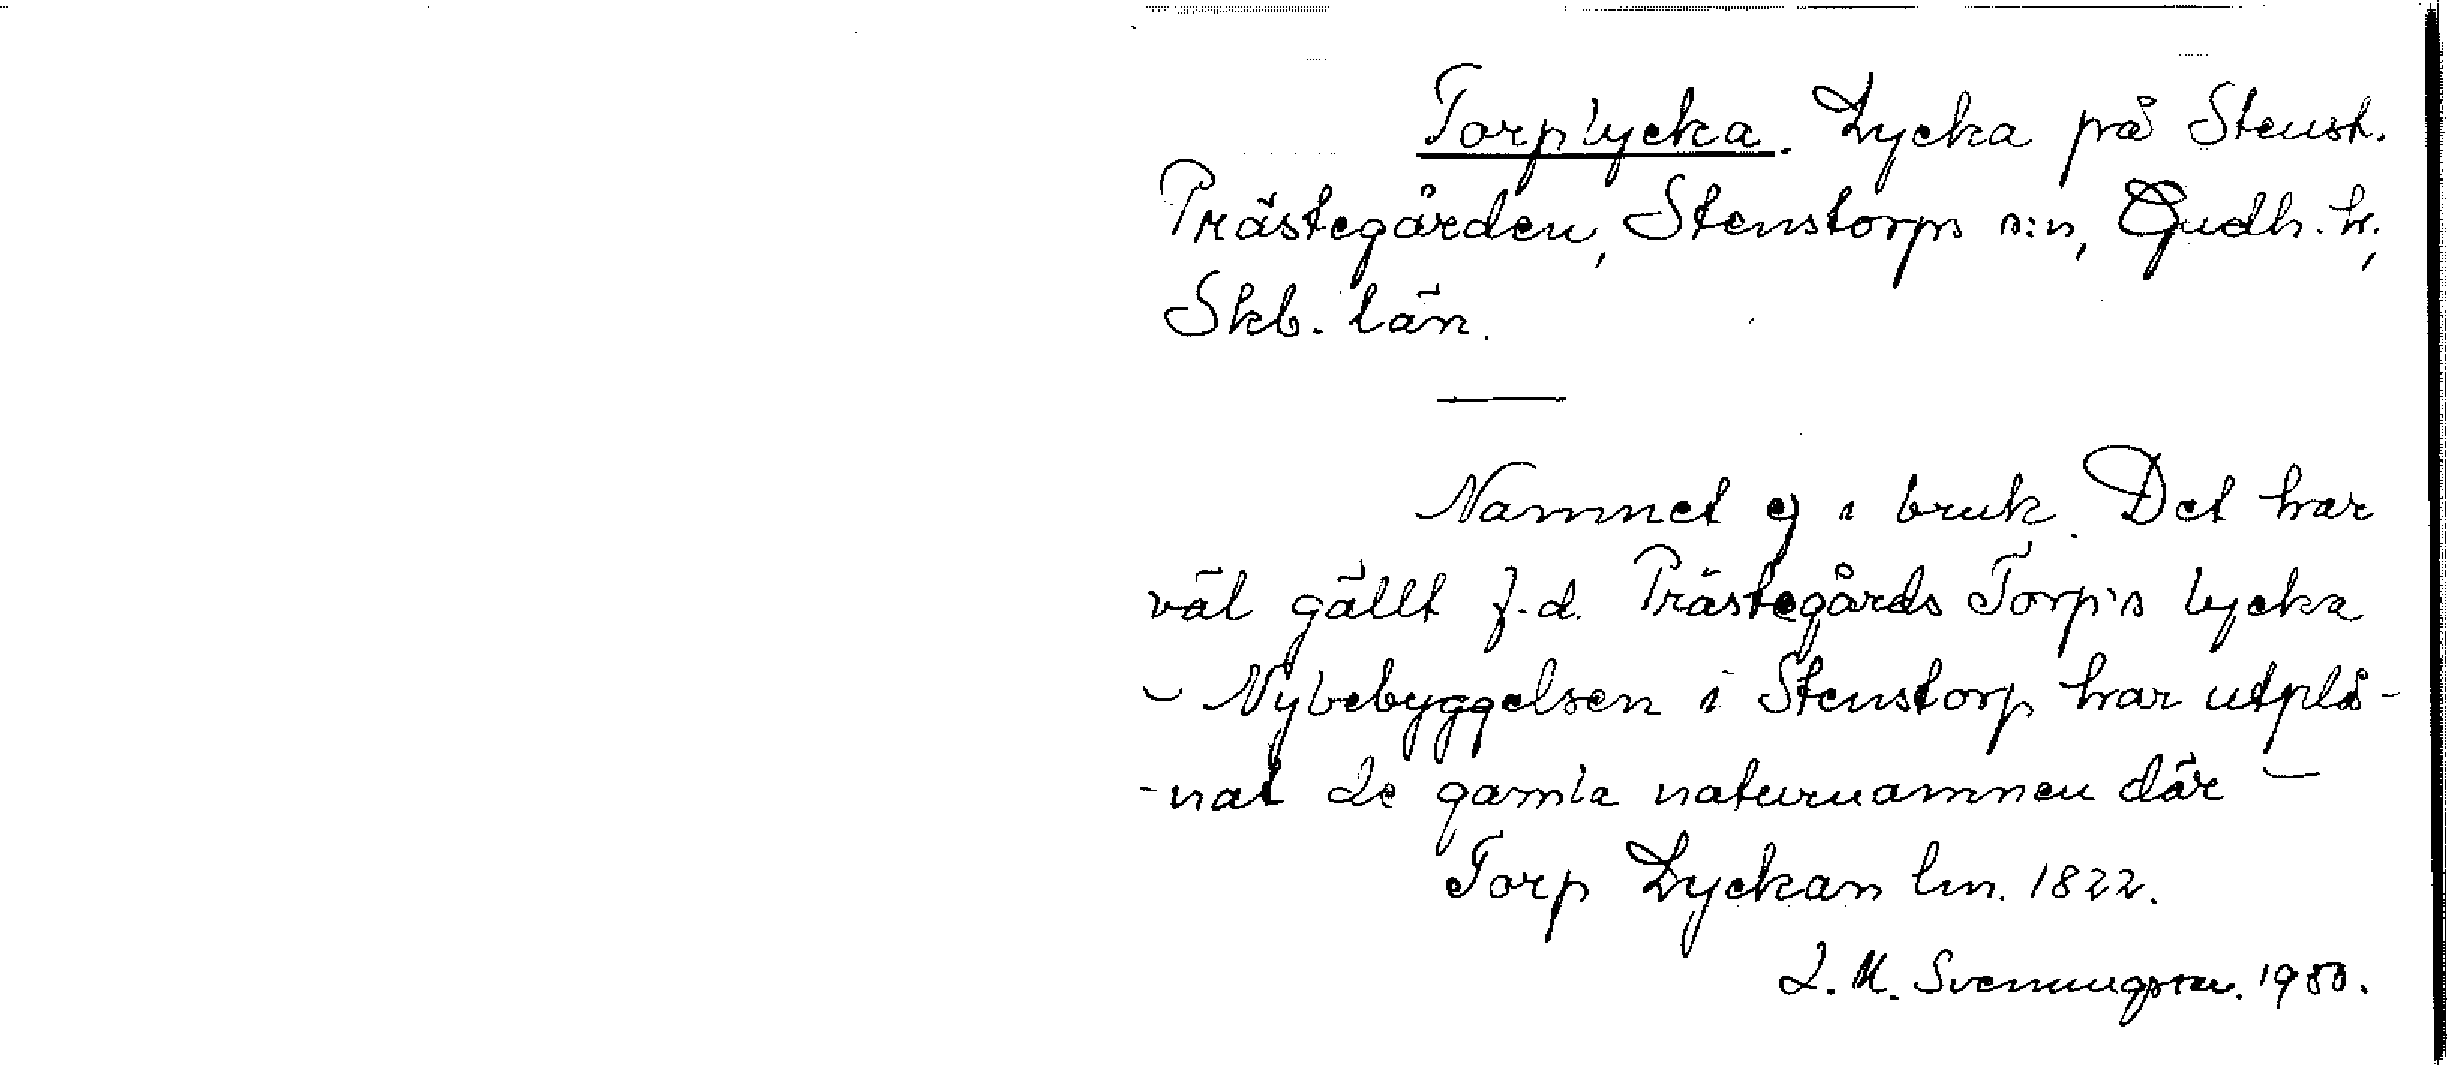 Torplycka. Lycka på Stenst.
Prästegården, Stenstorps s:n, Gudh. hr.,
Skb. län.
Namnet ej i bruk. Det har
väl gällt f.d. Prästegårds Torp's lycka
- Nybebyggelsen i Stenstorp har utplå-
-nat de gamla naturnamnen där -
Torp Lyckan lm. 1822.
L. M. Svenungsson. 1980.